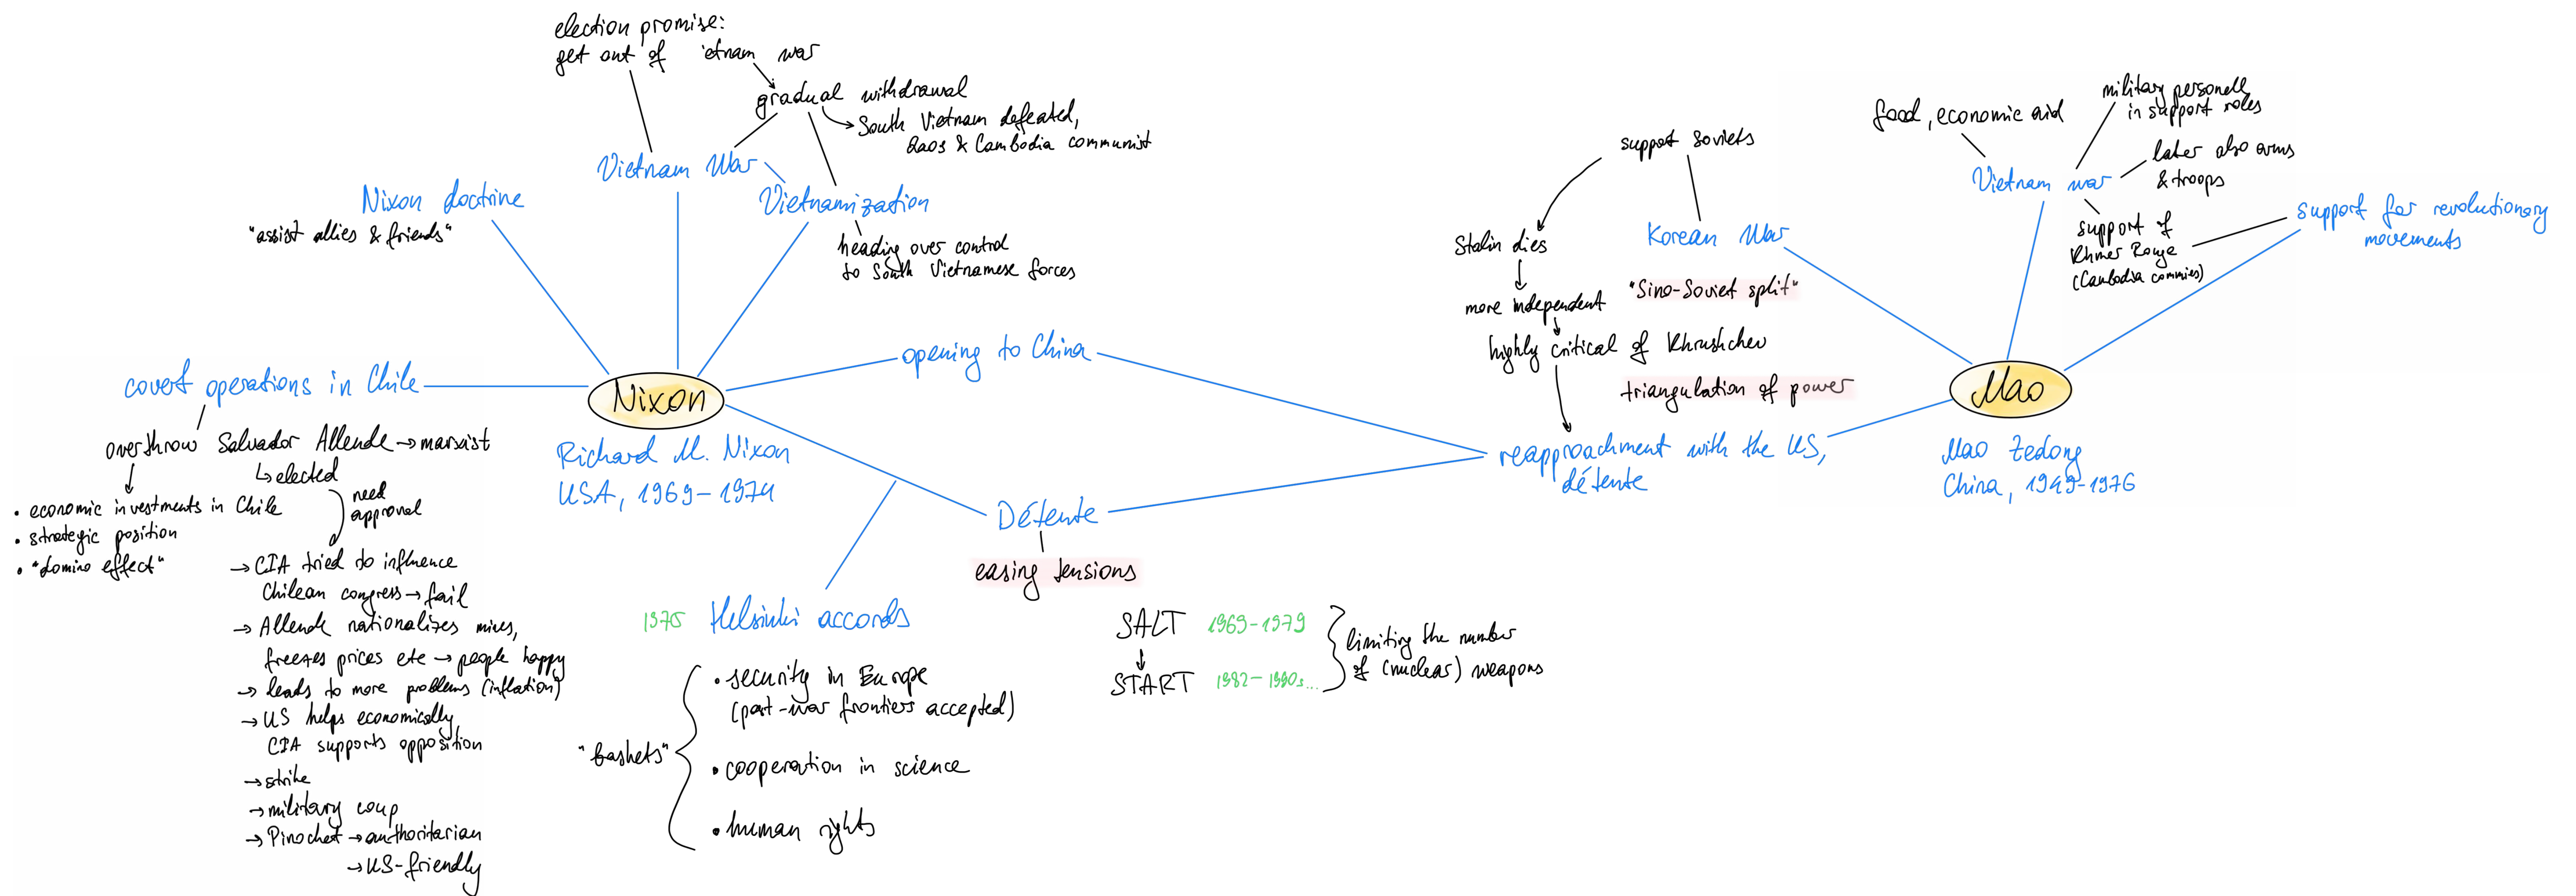 election promise:
get out of 'etnam war
gradual withdrawal
→ South Vietnam defeated,
Laos & Cambodia communist
Vietnam War
Vietnamization
heading over control
to South Vietnamese forces
Nixon doctrine
"assist allies & friends"
covert operations in Chile
overthrow Salvador Allende → marxist
↳ elected
need
approval
• economic investments in Chile
• strategic position
• "domino effect"
→ CIA tried to influence
Chilean congress → fail
→ Allende nationalizes mines,
freezes prices etc → people happy
→ leads to more problems (inflation)
→ US helps economically,
CIA supports opposition
→ strike
→ military coup
→ Pinochet → authoritarian
→ US-friendly
Nixon
Richard M. Nixon
USA, 1969-1974
opening to China
Détente
easing tensions
1975 Helsinki accords
"baskets"
• security in Europe
(post-war frontiers accepted)
• cooperation in science
• human rights
SALT 1969-1979
START 1982-1990s...
limiting the number
of (nuclear) weapons
support Soviets
Korean War
Stalin dies
more independent
"Sino-Soviet split"
highly critical of Khrushchev
triangulation of power
reapproachment with the US,
détente
Mao
Mao Zedong
China, 1949-1976
food, economic aid
military personell
in support roles
Vietnam war
later also arms
& troops
support of
Khmer Rouge
(Cambodia commies)
support for revolutionary
movements